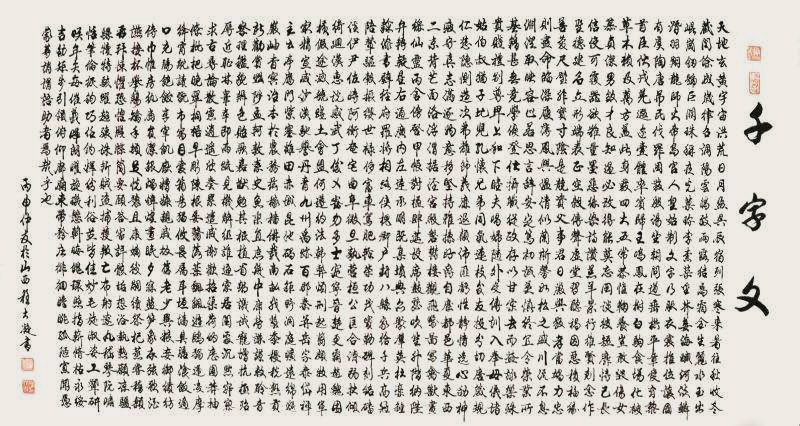 千字文
天地玄黃宇宙洪荒日月盈昃辰宿列張寒來暑往秋收冬
藏閏餘成歲律呂調陽雲騰致雨露結為霜金生麗水玉出
崑岡劍號巨闕珠稱夜光果珍李柰菜重芥薑海鹹河淡鱗
潛羽翔龍師火帝鳥官人皇始制文字乃服衣裳推位讓國
有虞陶唐弔民伐罪周發殷湯坐朝問道垂拱平章愛育黎
首臣伏戎羌遐邇壹體率賓歸王鳴鳳在樹白駒食場化被
草木賴及萬方蓋此身髮四大五常恭惟鞠養豈敢毀傷女
慕貞潔男效才良知過必改得能莫忘罔談彼短靡恃己長
信使可覆器欲難量墨悲絲染詩讚羔羊景行維賢剋念作
聖德建名立形端表正空谷傳聲虛堂習聽禍因惡積福緣
善慶尺璧非寶寸陰是競資父事君曰嚴與敬孝當竭力忠
則盡命臨深履薄夙興溫凊似蘭斯馨如松之盛川流不息
淵澄取映容止若思言辭安定篤初誠美慎終宜令榮業所
基籍甚無竟學優登仕攝職從政存以甘棠去而益詠樂殊
貴賤禮別尊卑上和下睦夫唱婦隨外受傅訓入奉母儀諸
姑伯叔猶子比兒孔懷兄弟同氣連枝交友投分切磨箴規
仁慈隱惻造次弗離節義廉退顛沛匪虧性靜情逸心動神
疲守真志滿逐物意移堅持雅操好爵自縻都邑華夏東西
二京背邙面洛浮渭據涇宮殿盤鬱樓觀飛驚圖寫禽獸畫
彩仙靈丙舍傍啟甲帳對楹肆筵設席鼓瑟吹笙升階納陛
弁轉疑星右通廣內左達承明既集墳典亦聚群英杜稿鍾
隸漆書壁經府羅將相路俠槐卿戶封八縣家給千兵高冠
陪輦驅轂振纓世祿侈富車駕肥輕策功茂實勒碑刻銘磻
溪伊尹佐時阿衡奄宅曲阜微旦孰營桓公匡合濟弱扶傾
綺迴漢惠說感武丁俊乂密勿多士寔寧晉楚更霸趙魏困
橫假途滅虢踐土會盟何遵約法韓弊煩刑起翦頗牧用軍
最精宣威沙漠馳譽丹青九州禹跡百郡秦并嶽宗泰岱禪
主云亭雁門紫塞雞田赤城昆池碣石鉅野洞庭曠遠綿邈
巖岫杳冥治本於農務茲稼穡俶載南畝我藝黍稷稅熟貢
新勸賞黜陟孟軻敦素史魚秉直庶幾中庸勞謙謹敕聆音
察理鑑貌辨色貽厥嘉猷勉其祗植省躬譏誡寵增抗極殆
辱近恥林皋幸即兩疏見機解組誰逼索居閒處沉默寂寥
求古尋論散慮逍遙欣奏累遣慼謝歡招渠荷的歷園莽抽
條枇杷晚翠梧桐早凋陳根委翳落葉飄颻遊鵾獨運凌摩
絳霄耽讀翫市寓目囊箱易輶攸畏屬耳垣牆具膳餐飯適
口充腸飽飫烹宰飢厭糟糠親戚故舊老少異糧妾御績紡
侍巾帷房紈扇圓潔銀燭煒煌晝眠夕寐藍筍象床弦歌酒
讌接杯舉觴矯手頓足悅豫且康嫡後嗣續祭祀烝嘗稽顙
再拜悚懼恐惶牋牒簡要顧答審詳骸垢想浴執熱願涼驢
騾犢特駭躍超驤誅斬賊盜捕獲叛亡布射僚丸嵇琴阮嘯
恬筆倫紙鈞巧任釣釋紛利俗並皆佳妙毛施淑姿工顰妍
笑年矢每催曦暉朗曜璇璣懸斡晦魄環照指薪修祜永綏
吉劭矩步引領俯仰廊廟束帶矜莊徘徊瞻眺孤陋寡聞愚
蒙等誚謂語助者焉哉乎也
丙申仲夏於山西程大書